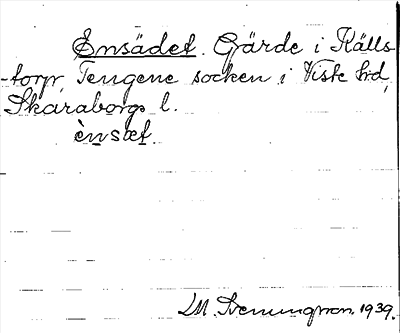 Ensädet. Gärde i Källs-
-torp, Tengene socken i Viste hd,
Skaraborgs l.
ènsæt.
IM. Svenungsson. 1939.